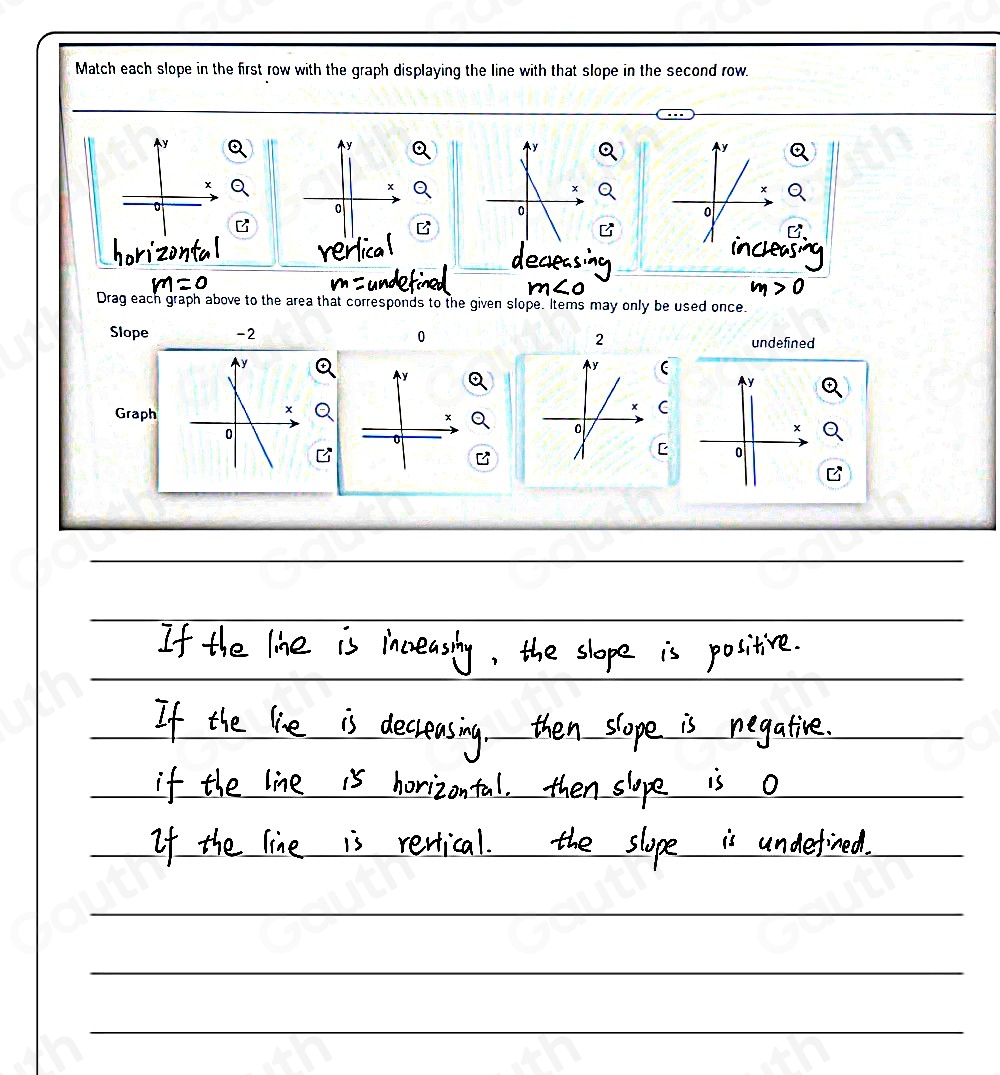 Match each slope in the first row with the graph displaying the line with that slope in the second row.
y y y y
x x x x
0 0 0 0
horizontal vertical decreasing increasing
m=0 m=undefined m<0 m>0
Drag each graph above to the area that corresponds to the given slope. Items may only be used once.
Slope -2 0 2 undefined
Graph
y y y y
x x x x
0 0 0 0
If the line is increasing, the slope is positive.
If the lie is decreasing. then slope is negative.
if the line is horizontal. then slope is 0
If the line is vertical. the slope is undefined.
Gauth